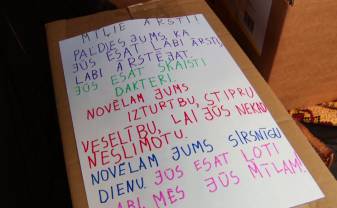 MIĻIE ĀRSTI!
PALDIES JUMS, KA
JŪS ESAT LABI ĀRSTI,
LABI ĀRSTĒJAT.
JŪS ESAT SKAISTI
DAKTERI.
NOVĒLAM JUMS
IZTURTBU, STIPRU
VESELĪBU, LAI JŪS NEKAD
NESLIMOTU.
NOVĒLAM JUMS SIRSNĪGU
DIENU. JŪS ESAT ĻOTI
LABI, MĒS JŪS MĪLAM!